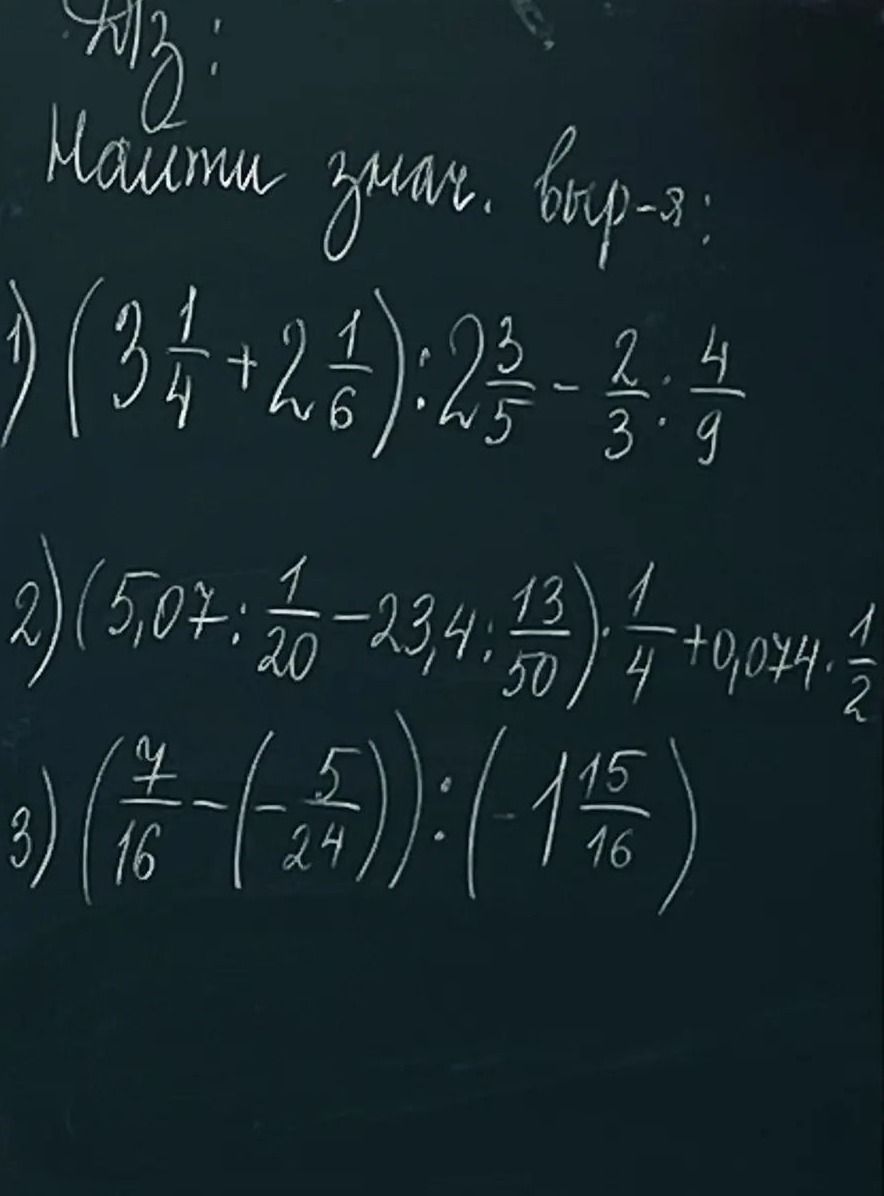 Д/з:
Найти знач. выр-я:
1) (3 1/4 + 2 1/6) : 2 3/5 - 2/3 : 4/9
2) (5,07 : 1/20 - 23,4 : 13/50) · 1/4 + 0,074 · 1/2
3) (7/16 - (-5/24)) : (-1 15/16)